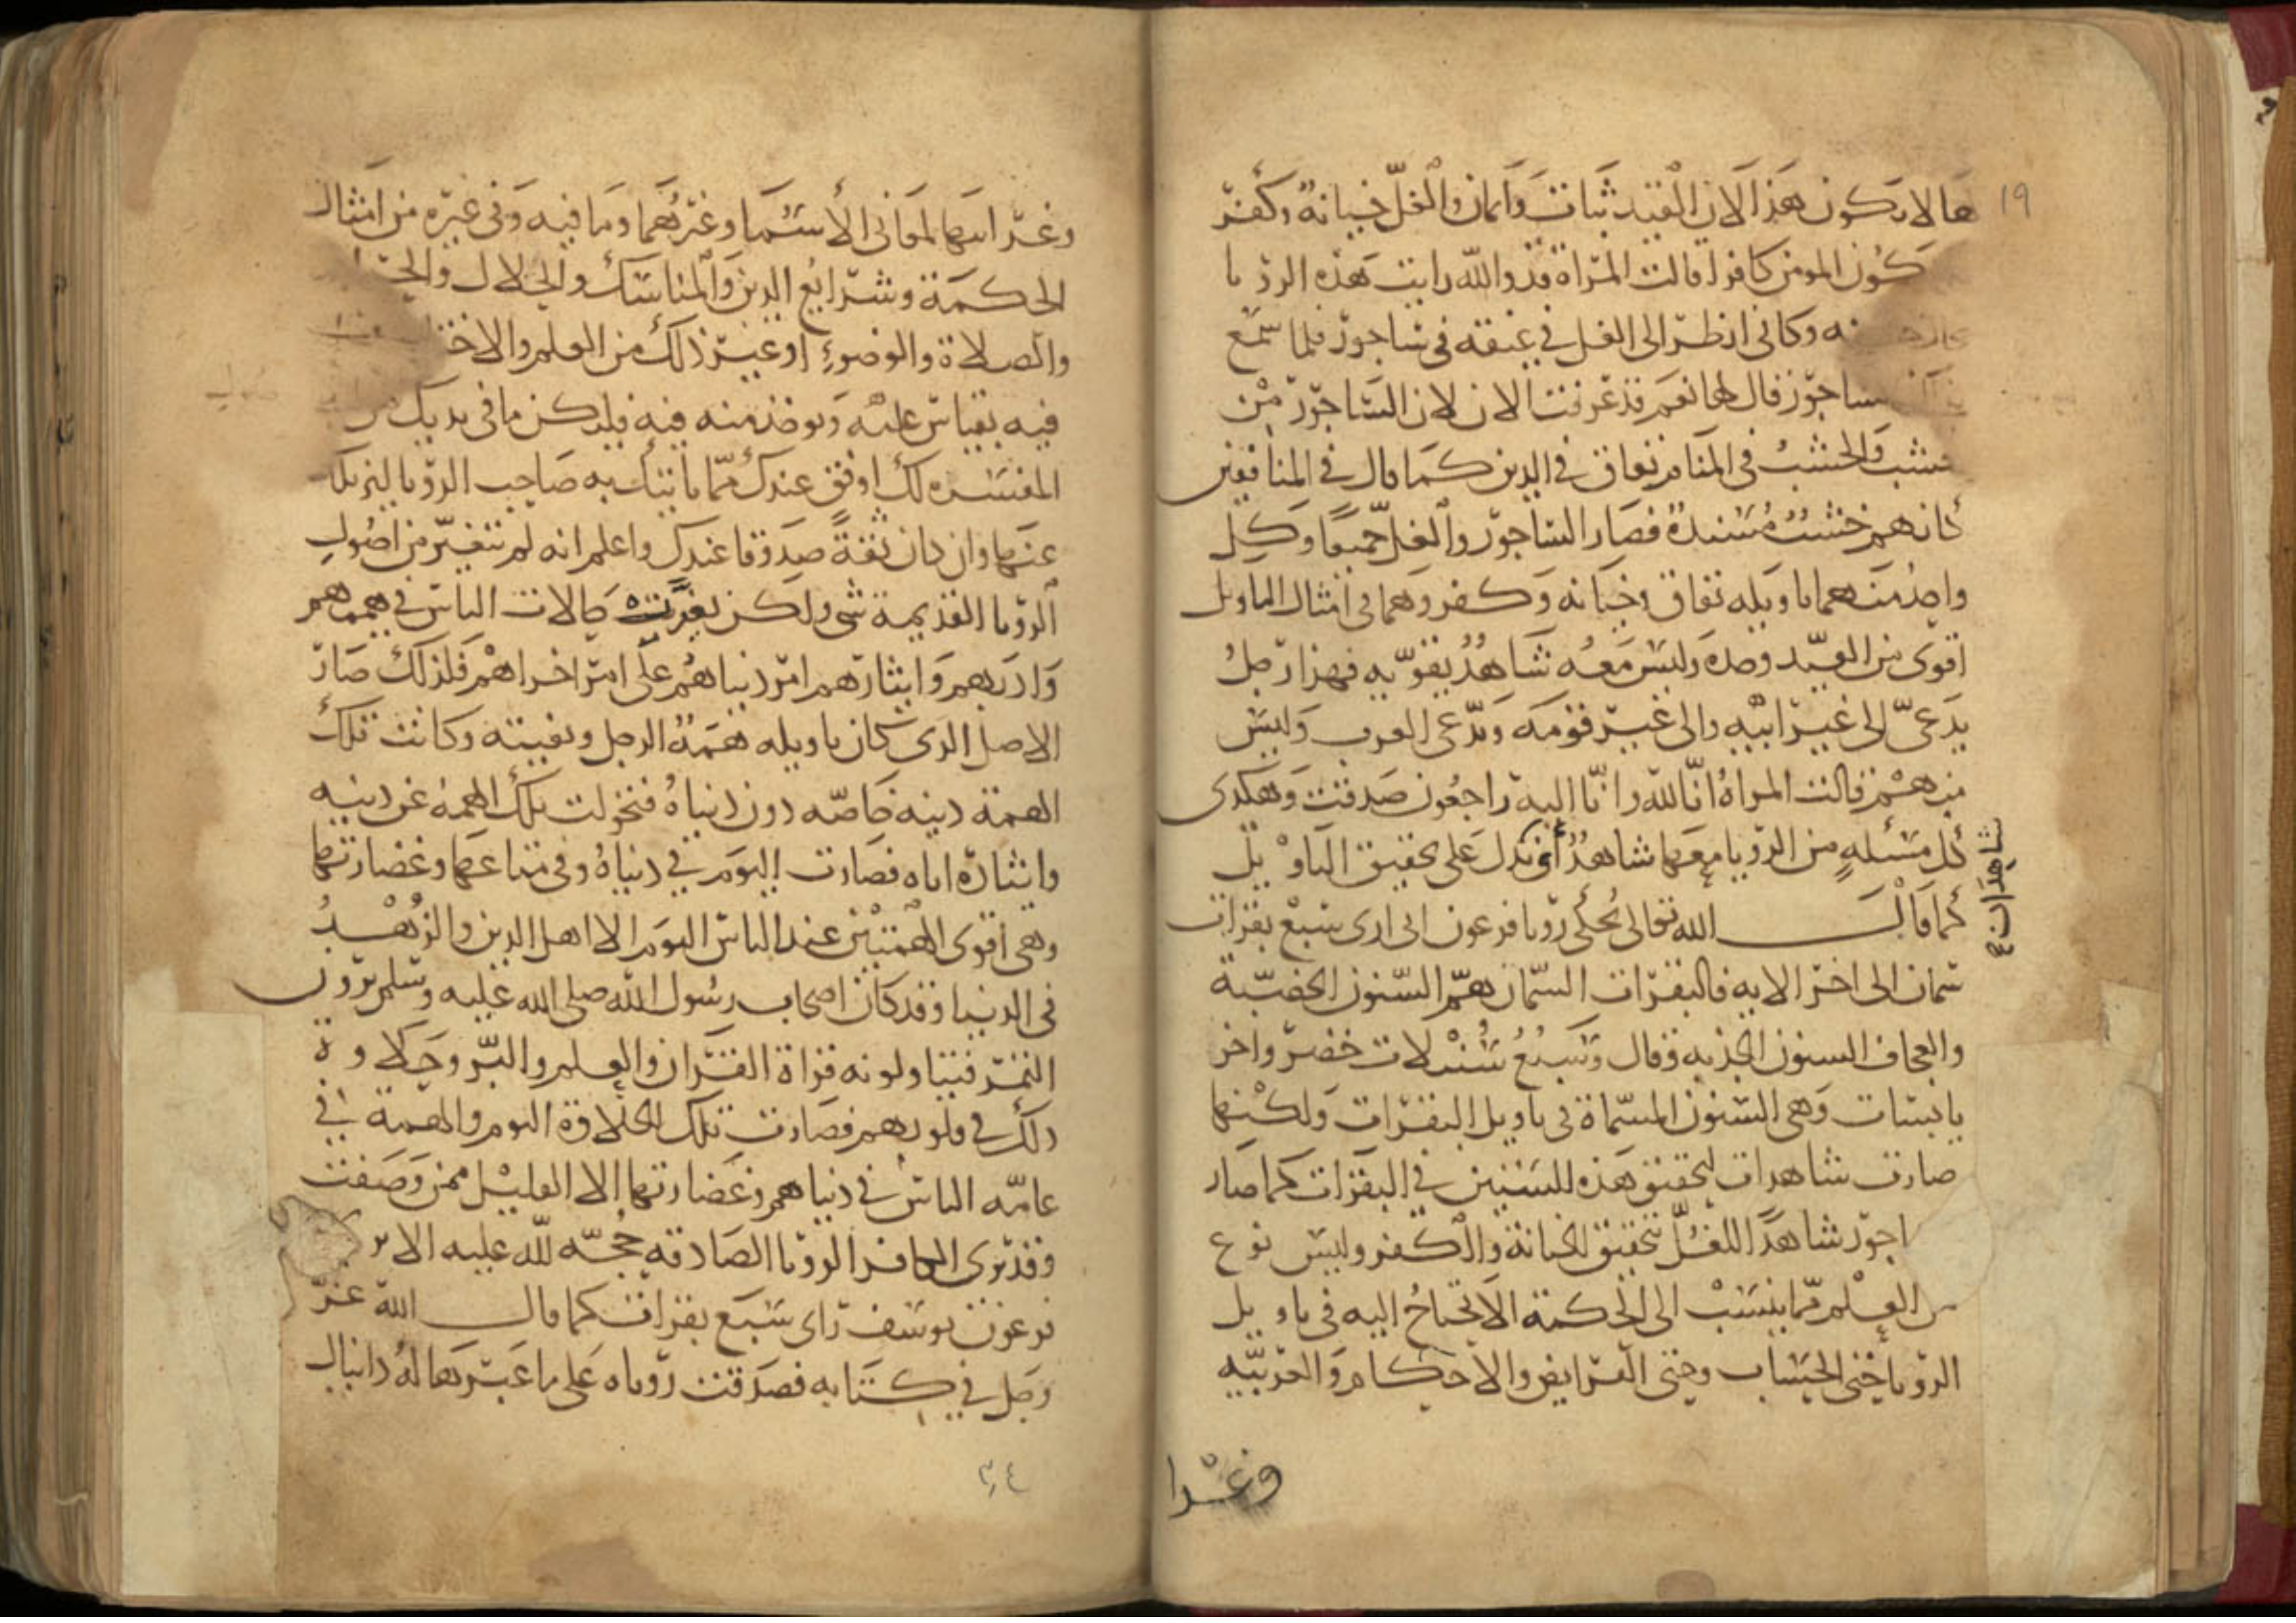 ١٩
لها لا يكون هذا لان القيد ثبات وايمان والغلّ خيانة وكفر
يكون المومن كافرا قالت المراة قد والله رايت هذه الرؤيا
وكاني انظر الى الغل في عنقه في ساجور فلما سمع
ساجور قال لها نعم قد عرفت الان لان الساجور من
خشب والخشب في المنام نفاق في الدين كما قال في المنافقين
كانهم خشب مسندة فصار الساجور والغلّ جميعا وكل
واحد منهما تاويله نفاق وخيانة وكفر وهما في امثال التاويل
اقوى من القيد وحده وليس معه شاهد يقويه فهذا رجل
يدعى الى غير ابيه والى غير قومه ويدعى العرب وليس
منهم فقالت المراة انا لله وانا اليه راجعون صدقت وهكذى
كل مسئلة من الرؤيا معها شاهد او تدل على تحقيق التاويل
شاهدان
كما قال الله تعالى يحكى رؤيا فرعون انى ارى سبع بقرات
سمان الى اخر الاية فالبقرات السمان هم السنون الخصبة
والعجاف السنون الجذبة وقال وسبع سنبلات خضر واخر
يابسات وهى السنون المسماة في تاويل البقرات ولكنها
صارت شاهدات لتحقيق هذه للسنين في البقرات كما صار
اجور شاهدا للغل بتحقيق الخيانة والكفر وليس نوع
من العلم مما ينسب الى الحكمة الا يحتاج اليه في تاويل
الرؤيا حتى الحساب وحتى الفرايض والاحكام والعربية
وغرا
وغرايبها لمعانى الأسما وغيرهما وما فيه وفى غيره من امثال
الحكمة وشرايع الدين والمناسك والحلال والحـ
والصلاة والوضوء او غير ذلك من العلم والاختـ
فيه يقياس عليه ويوخذ منه فيه فليكن ما فى يديك من
المفسرة لك اوثق عندك مما ياتيك به صاحب الرؤيا ليزيلك
عنها وان كان ثقة صدوقا عندك واعلم انه لم تتغير من اصول
الرؤيا القديمة شى ولكن تغيرت حالات الناس في هممهم
وادبهم وايثارهم امر دنياهم على امر اخراهم فلذلك صار
الاصل الذى كان تاويله همة الرجل وبغيته وكانت تلك
الهمة دينه خاصه دون دنياه فتحولت تلك الهمة عن دينه
وايثاره اياه فصارت اليوم في دنياه وفى متاعها وغضارتها
وهى اقوى الهمتين عند الناس اليوم الا اهل الدين والزهد
فى الدنيا وقد كان اصحاب رسول الله صلى الله عليه وسلم يرون
التمر فيتاولونه قراة القران والعلم والبر وحلاوة
ذلك في قلوبهم فصارت تلك الحلاوة اليوم والهمة في
عامه الناس في دنياهم وغضارتها الا القليل ممن وصفت
وقد يرى الكافر الرويا الصادقه حجه لله عليه الا
فرعون يوسف راى سبع بقرات كما قال الله عز
وجل في كتابه فصدقت روياه على ما عبرها له دانيال